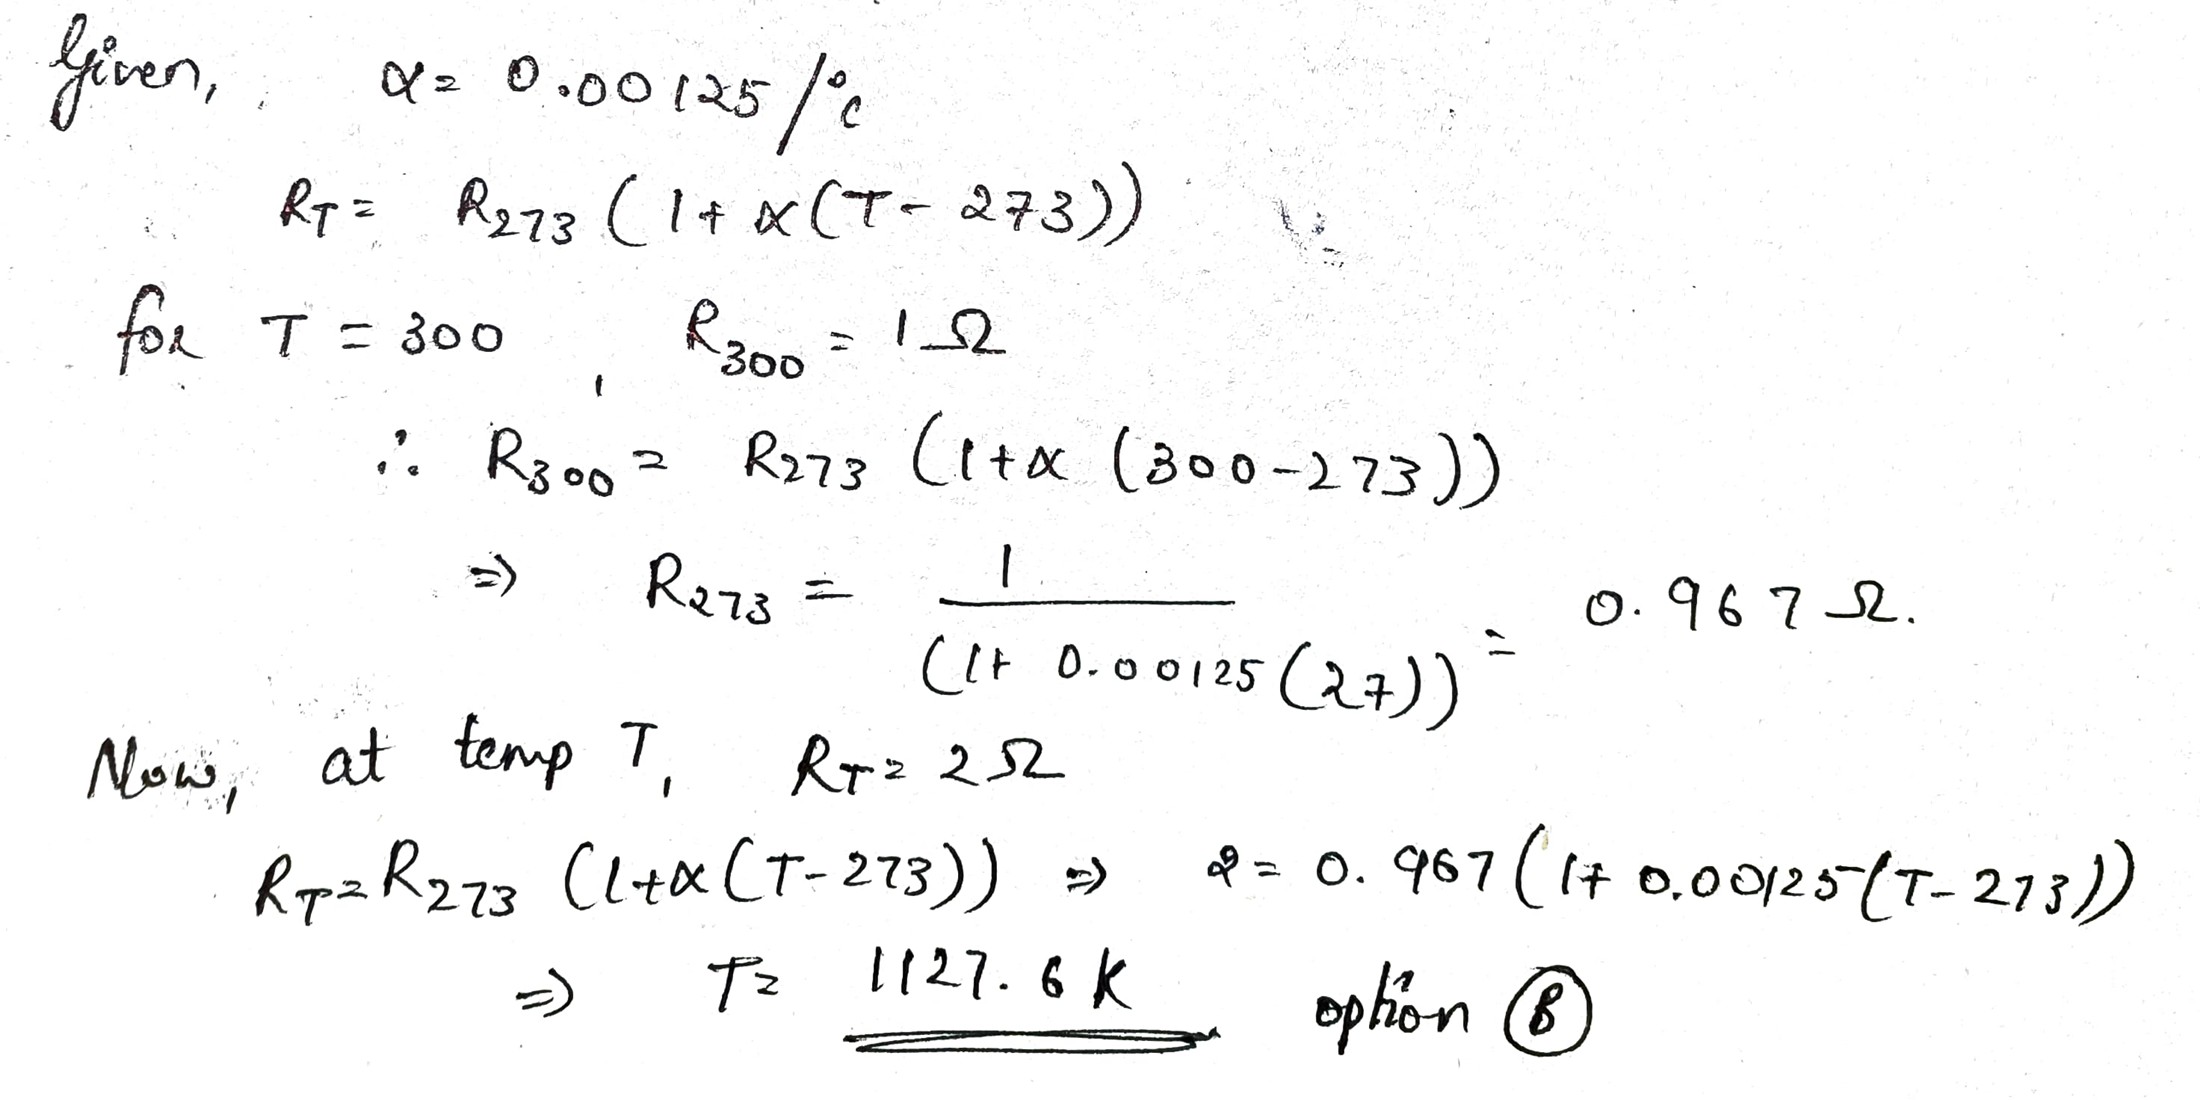 Given, α = 0.00125/°c
R_T = R_273 (1 + α(T - 273))
for T = 300, R_300 = 1Ω
∴ R_300 = R_273 (1+α (300-273))
⇒ R_273 = 1 / (1+ 0.00125(27)) = 0.967Ω.
Now, at temp T, R_T = 2Ω
R_T = R_273 (1+α(T-273)) ⇒ 2 = 0.967(1+ 0.00125(T-273))
⇒ T = 1127.6 K option Ⓑ